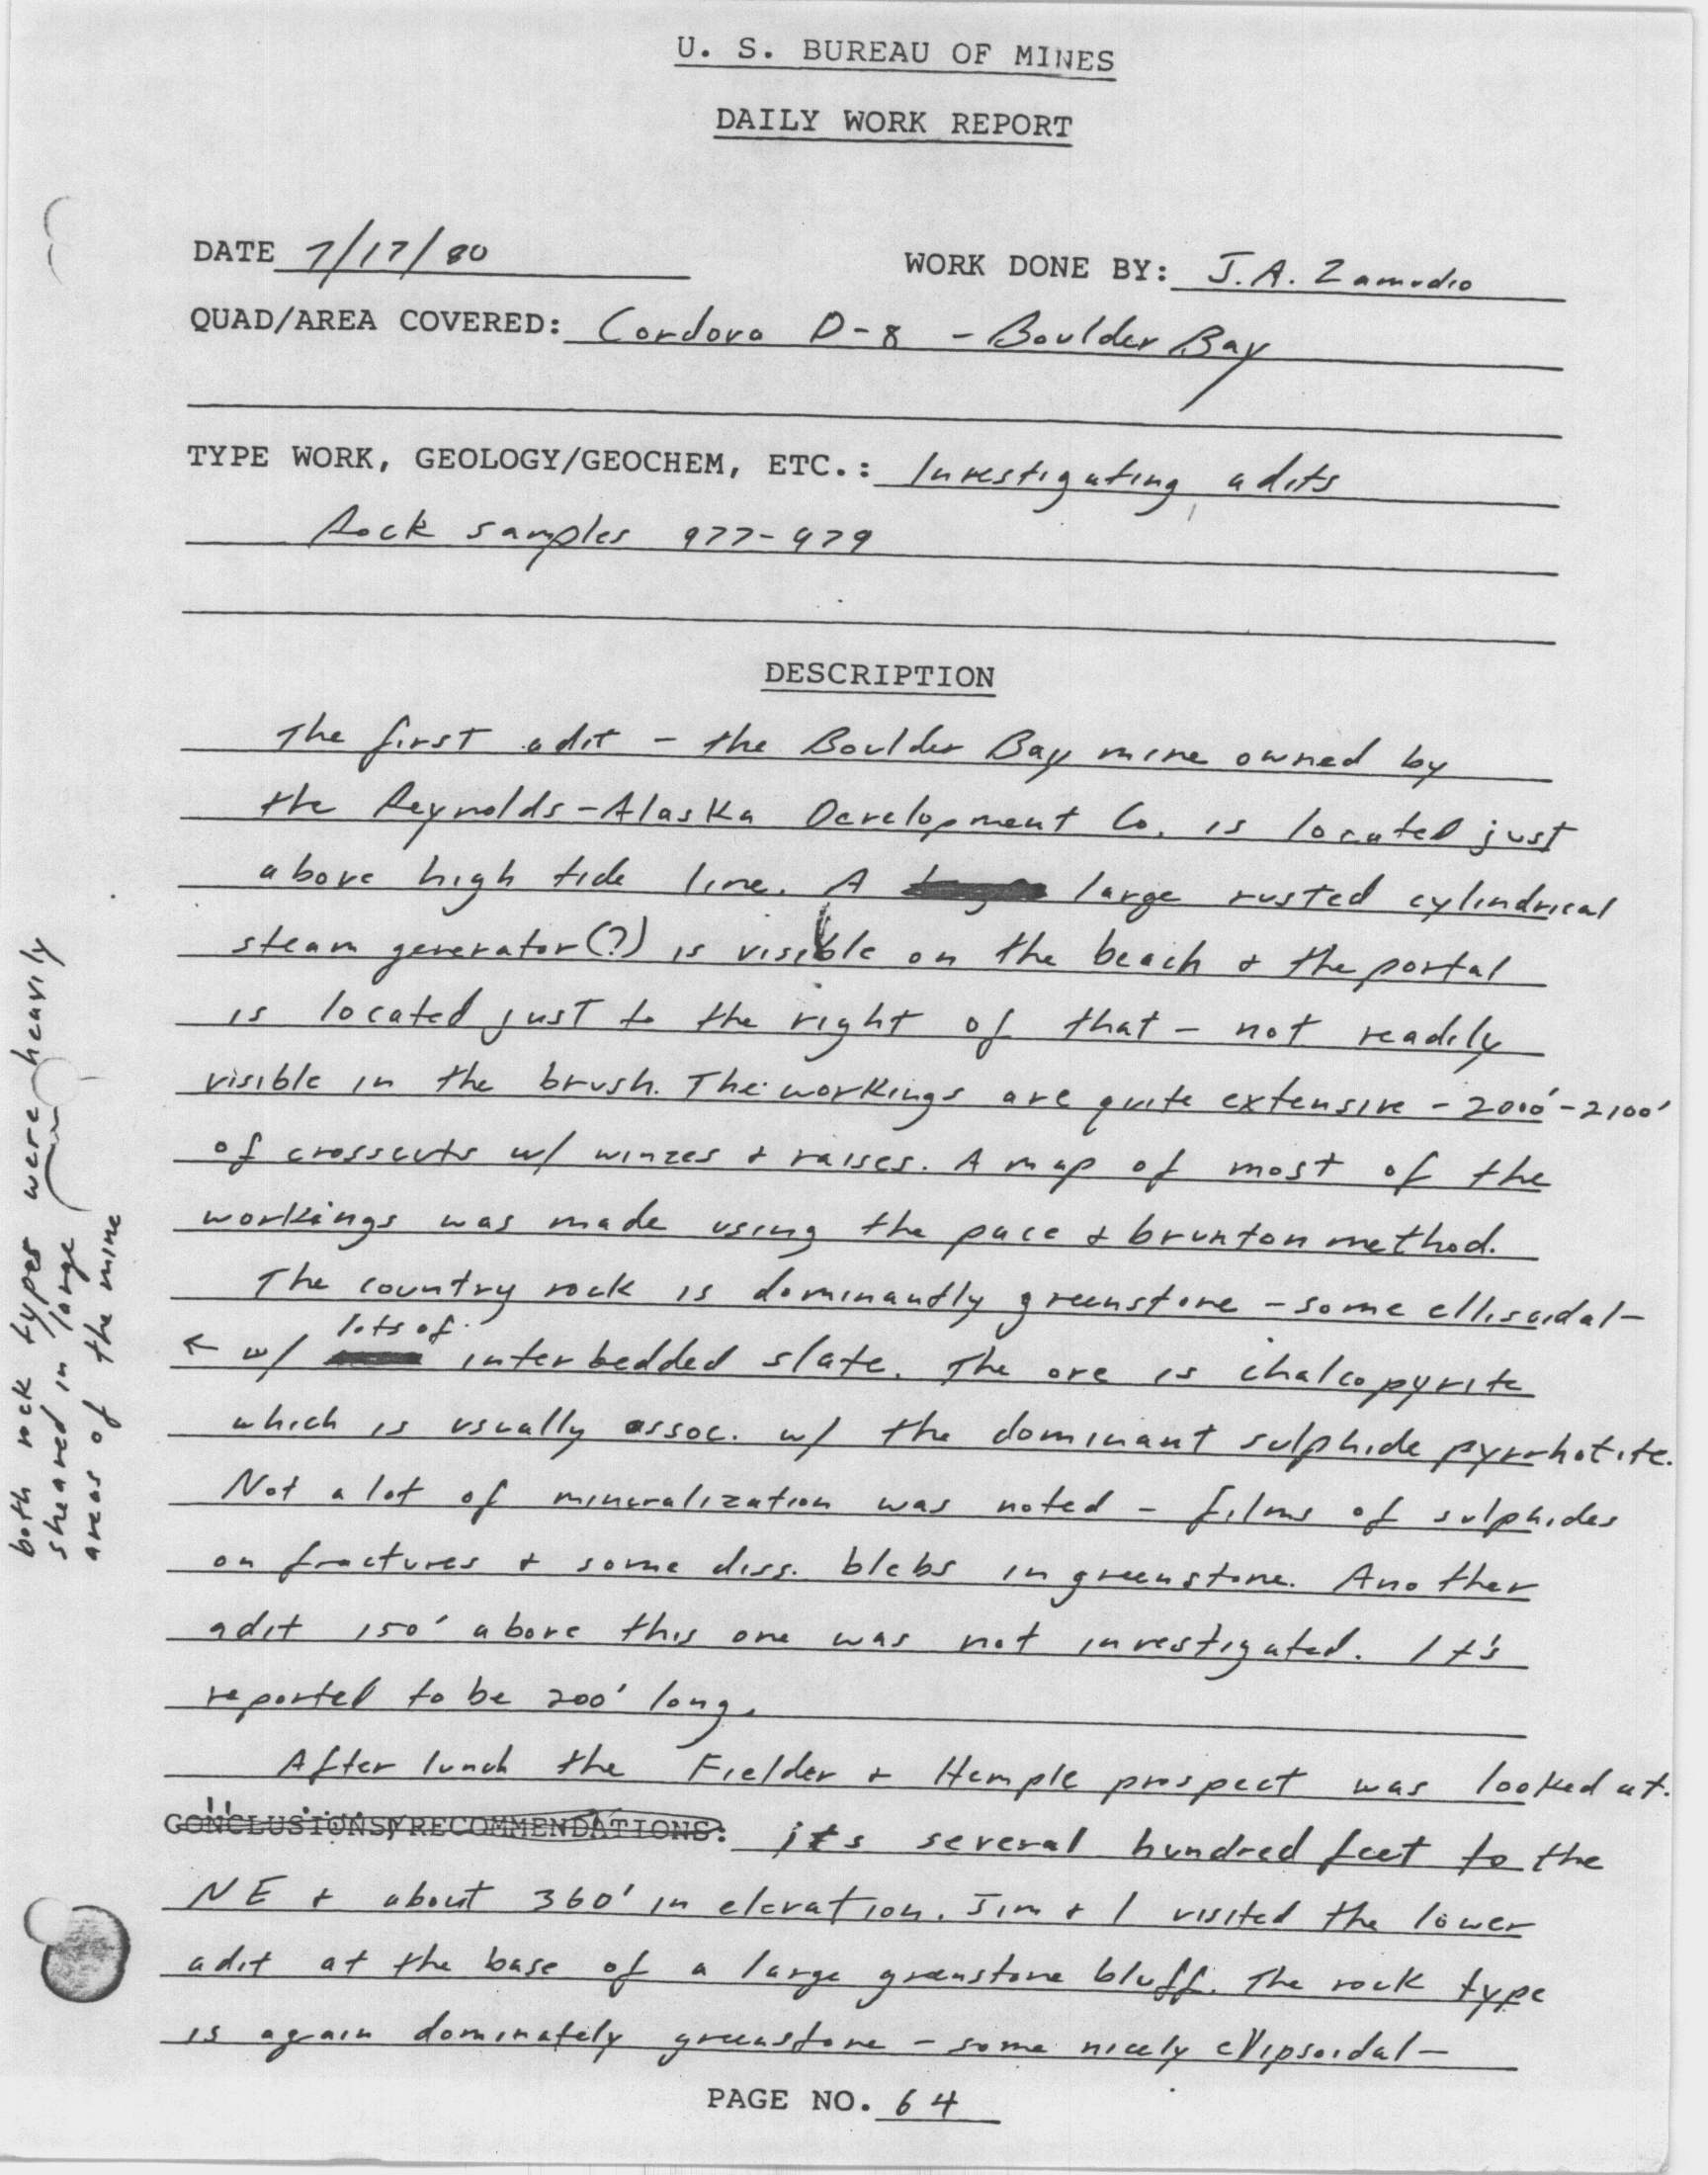 U. S. BUREAU OF MINES
DAILY WORK REPORT
DATE 7/17/80
WORK DONE BY: J.A. Zamudio
QUAD/AREA COVERED: Cordova D-8 - Boulder Bay
TYPE WORK, GEOLOGY/GEOCHEM, ETC.: Investigating adits
Rock samples 977-979
DESCRIPTION
The first adit - the Boulder Bay mine owned by
the Reynolds-Alaska Development Co. is located just
above high tide line. A large rusted cylindrical
steam generator(?) is visible on the beach & the portal
is located just to the right of that - not readily
visible in the brush. The workings are quite extensive - 2000'-2100'
of crosscuts w/ winzes & raises. A map of most of the
workings was made using the pace & brunton method.
The country rock is dominantly greenstone - some ellisoidal-
← w/ lots of interbedded slate. The ore is chalcopyrite
which is usually assoc. w/ the dominant sulphide pyrrhotite.
Not a lot of mineralization was noted - films of sulphides
on fractures & some diss. blebs in greenstone. Another
adit 150' above this one was not investigated. It's
reported to be 200' long.
After lunch the Fielder & Hemple prospect was looked at.
CONCLUSIONS/RECOMMENDATIONS: its several hundred feet to the
NE & about 360' in elevation. Jim & I visited the lower
adit at the base of a large greenstone bluff. The rock type
is again dominately greenstone - some nicely ellipsoidal-
PAGE NO. 64
both rock types were heavily
sheared in large
areas of the mine